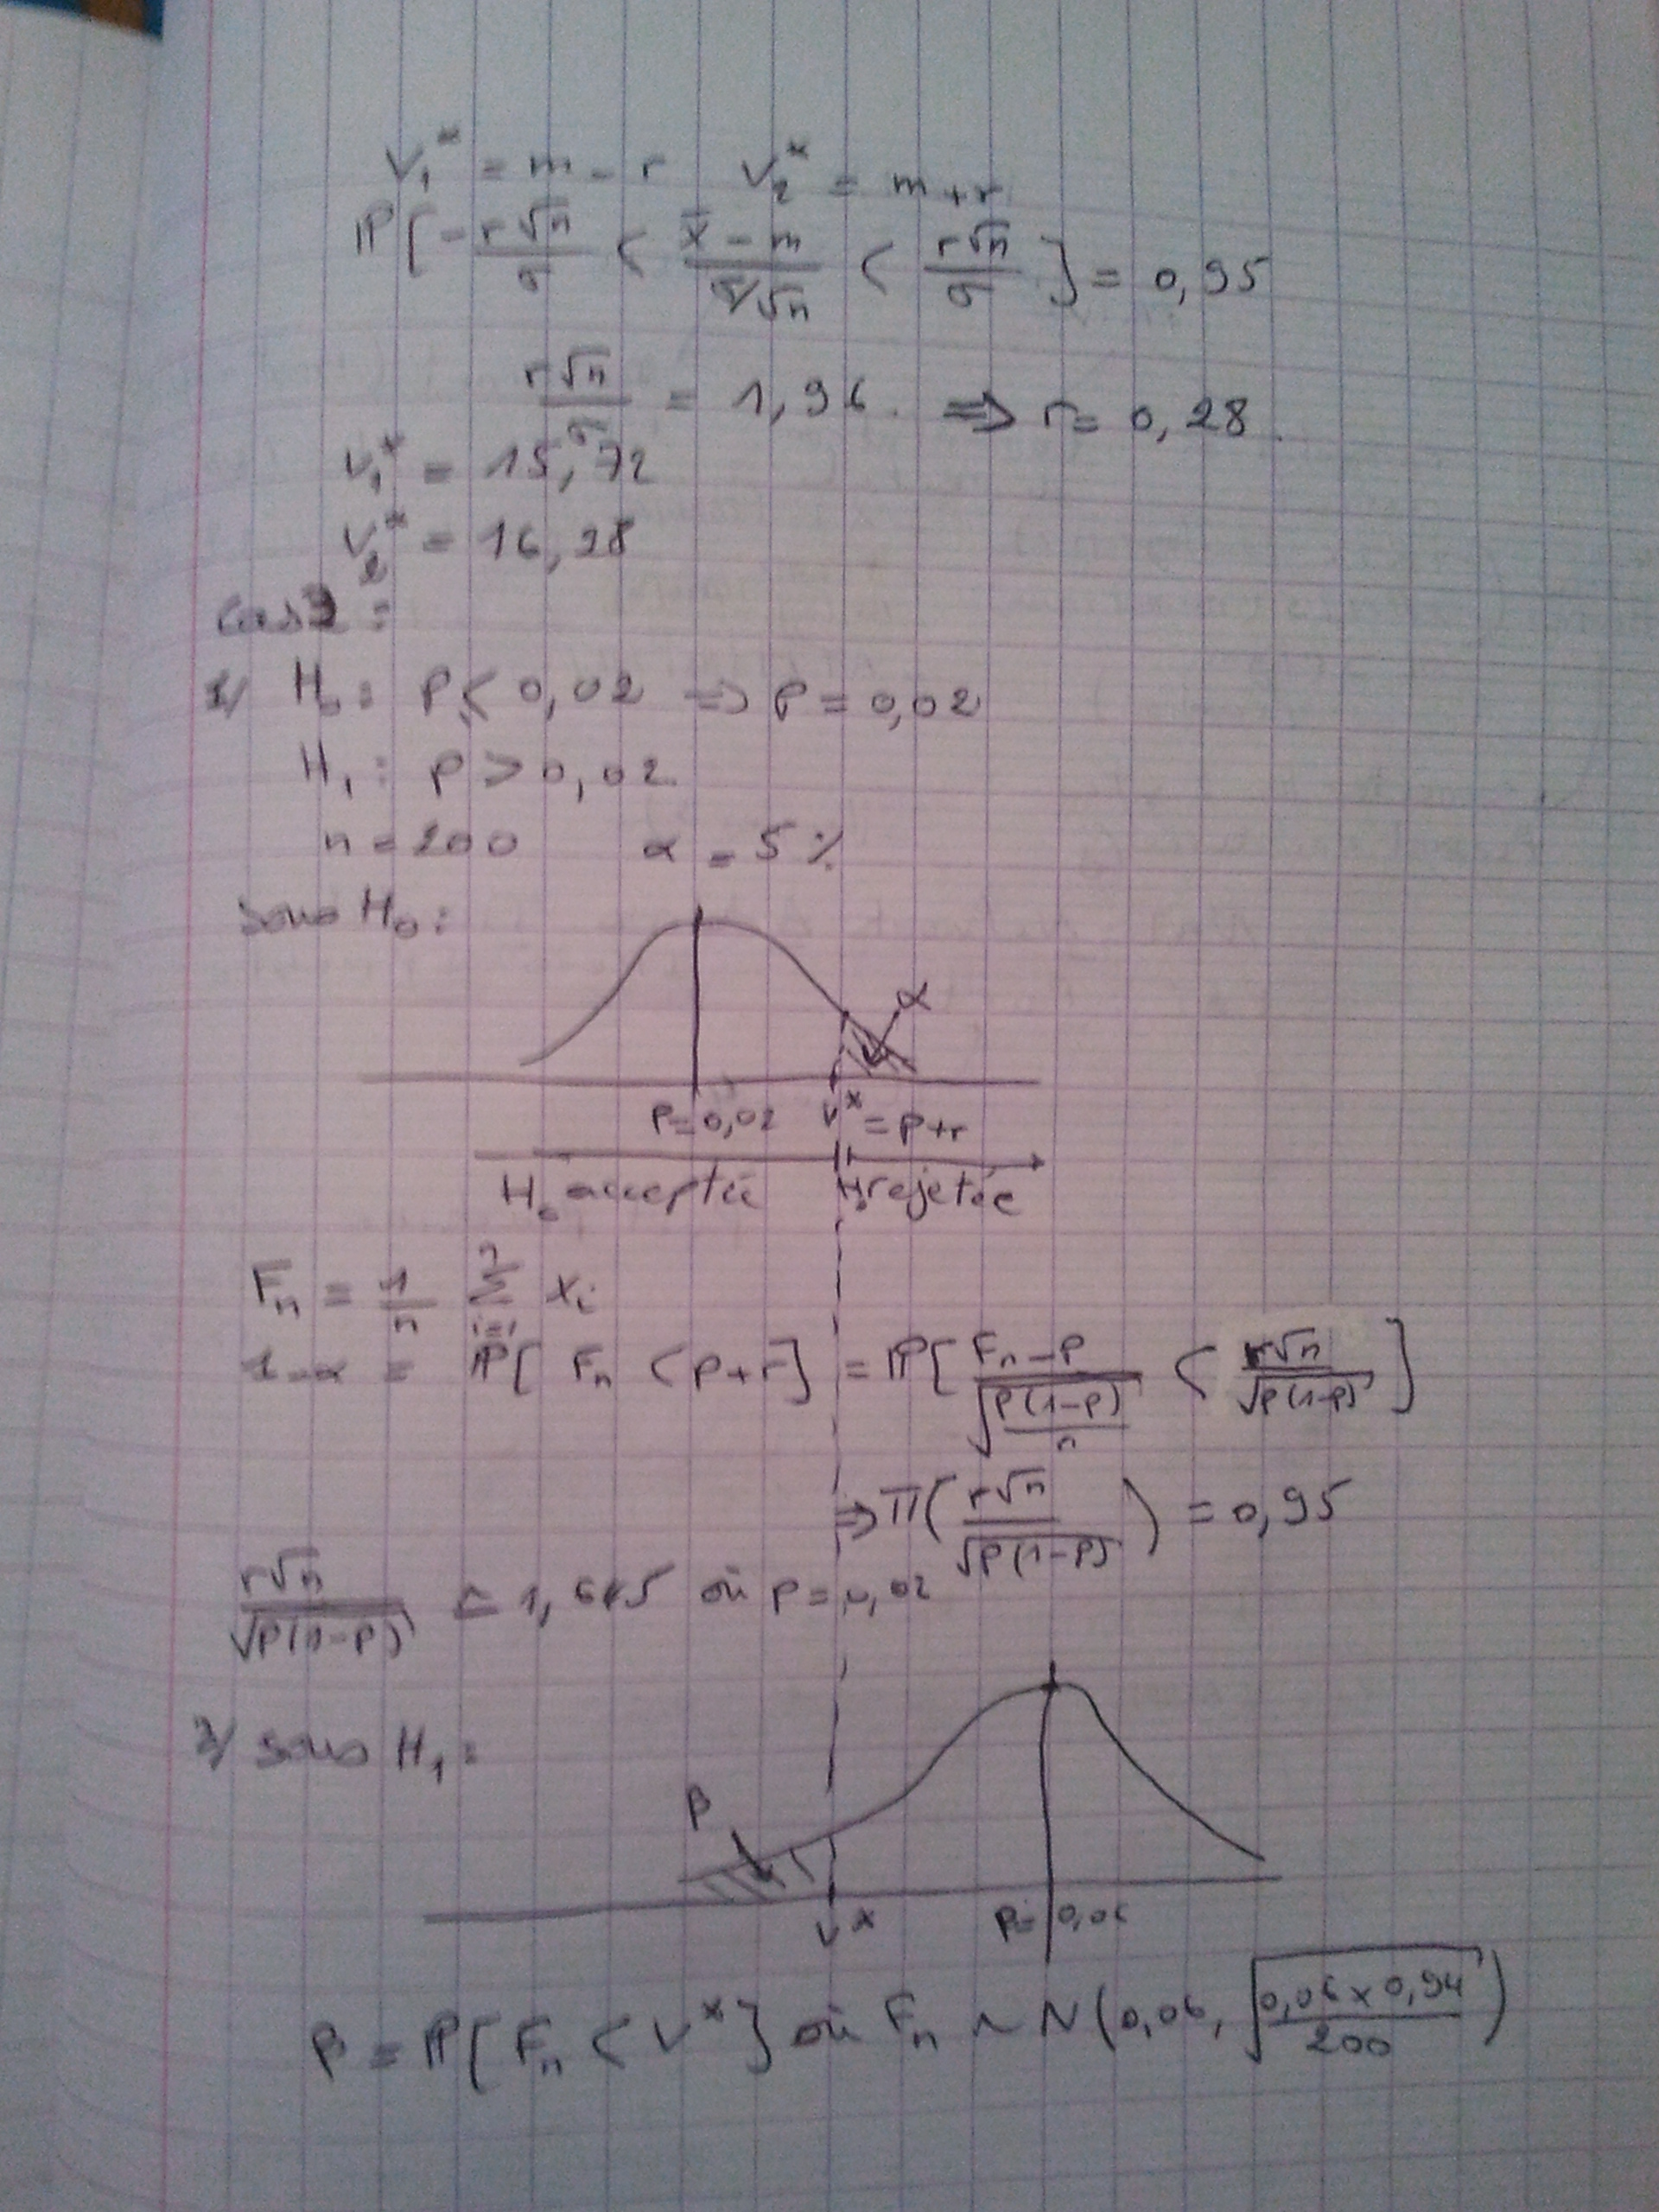 V₁* = m - r   V₂* = m + r
ℙ[ -r√n/σ < (x̄ - m)/(σ/√n) < r√n/σ ] = 0,95
r√n/σ = 1,96. ⇒ r = 0,28.
V₁* = 15,72
V₂* = 16,28
1/ H₀ : P ≤ 0,02 ⇒ P = 0,02
H₁ : P > 0,02
n = 200   α = 5 %
sous H₀ :
α
P = 0,02   V* = P + r
H₀ acceptée   H₀ rejetée
Fₙ = 1/n Σ(i=1 à n) Xᵢ
1 - α = ℙ[ Fₙ < P + r ] = ℙ[ (Fₙ - P)/√(P(1-P)/n) < r√n/√(P(1-P)) ]
⇒ Π( r√n/√(P(1-P)) ) = 0,95
r√n/√(P(1-P)) ≃ 1,645 où P = 0,02
2/ sous H₁ :
β
V*   P = 0,06
β = ℙ[ Fₙ < V* ] où Fₙ ~ N(0,06, √(0,06 × 0,94/200))